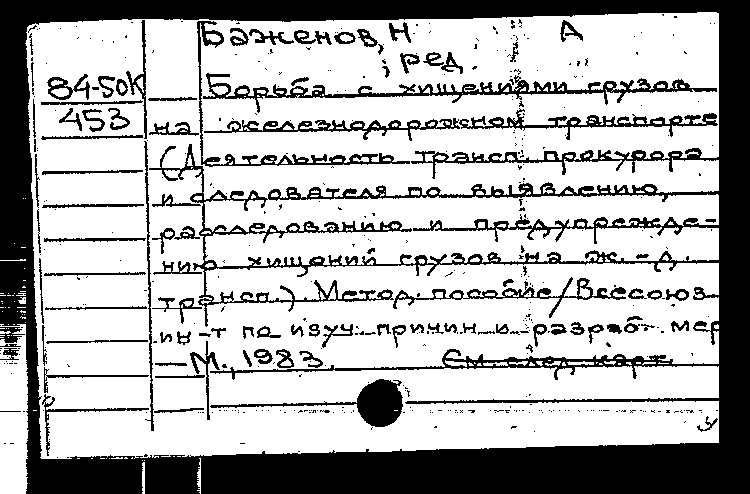 Баженов, Н А
; ред.
84-50К Борьба с хищениями грузов
453 на железнодорожном транспорте
(Деятельность трансп. прокурора
и следователя по выявлению,
расследованию и предупрежде-
нию хищений грузов на ж.-д.
трансп.). Метод. пособие/Всесоюз
ин-т по изуч. причин и разраб. мер
—М., 1983. См. след. карт.